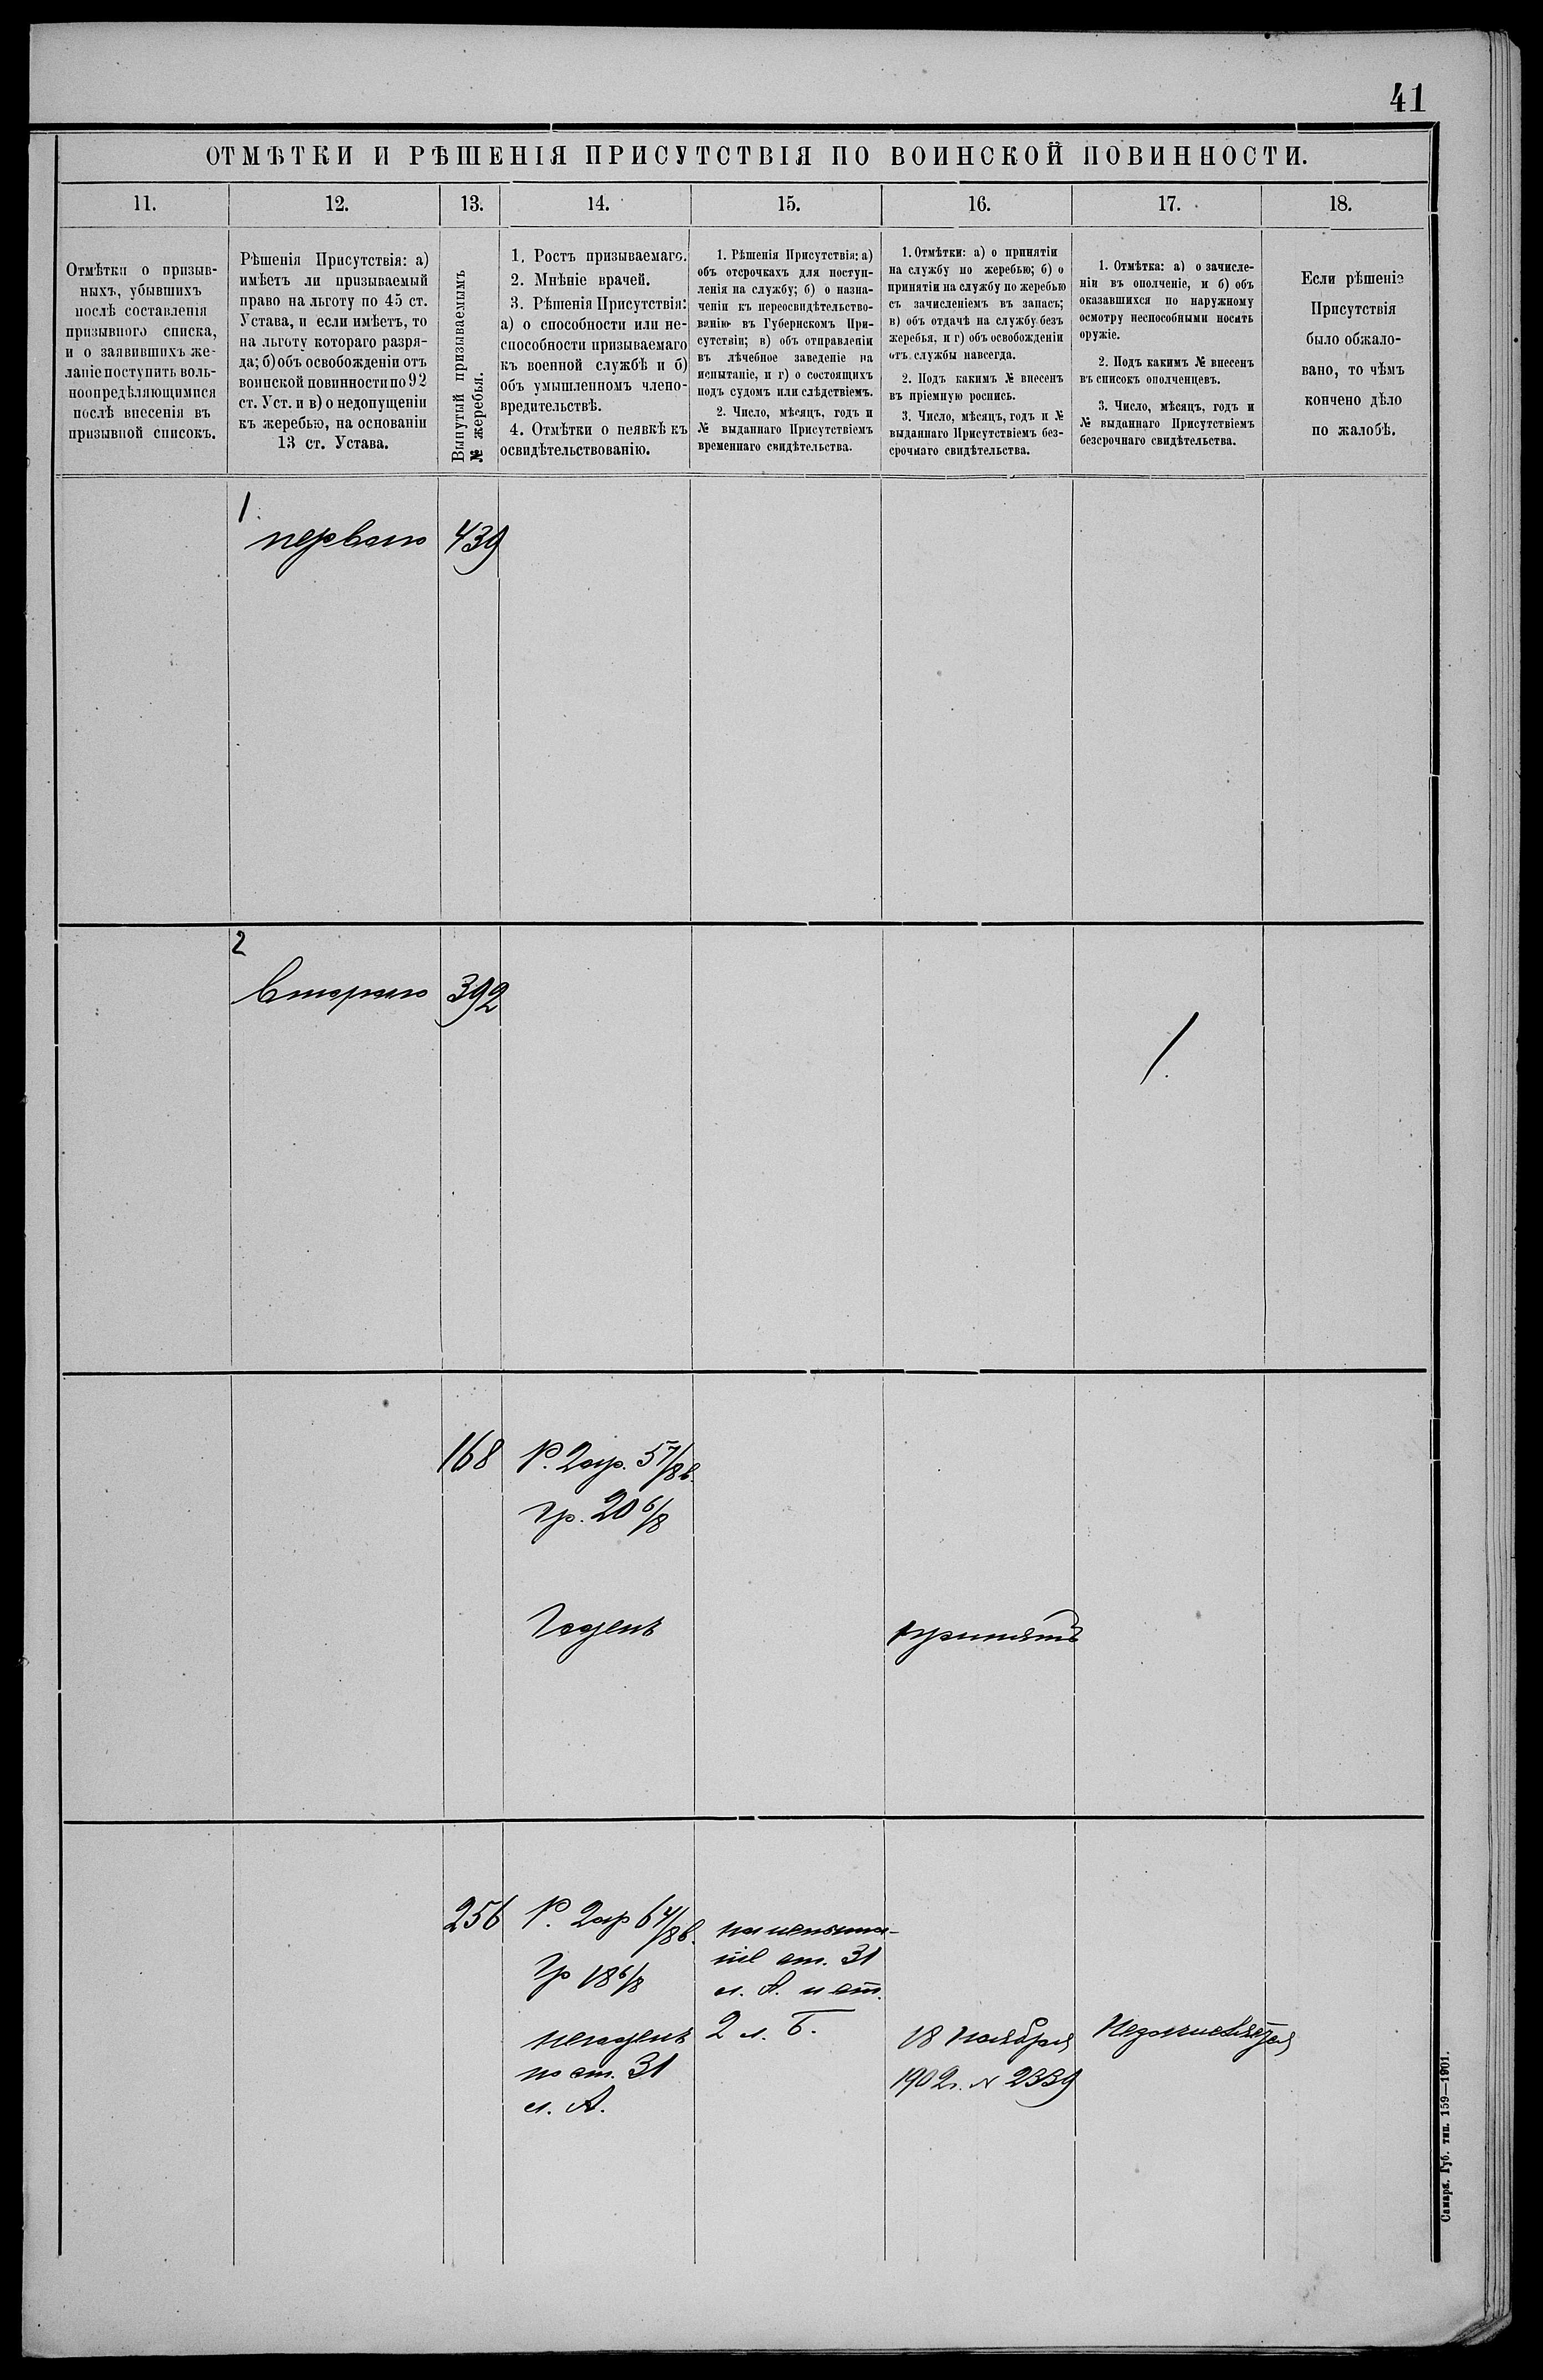 41
ОТМѢТКИ И РѢШЕНІЯ ПРИСУТСТВІЯ ПО ВОИНСКОЙ ПОВИННОСТИ.
11.
12.
13.
14.
15.
16.
17.
18.
Отмѣтки о призыв-
ныхъ, убывшихъ
послѣ составленія
призывного списка,
и о заявившихъ же-
ланіе поступить воль-
ноопредѣляющимися
послѣ внесенія въ
призывной списокъ.
Рѣшенія Присутствія: а)
имѣетъ ли призываемый
право на льготу по 45 ст.
Устава, и если имѣетъ, то
на льготу котораго разря-
да; б) объ освобожденіи отъ
воинской повинности по 92
ст. Уст. и в) о недопущеніи
къ жеребью, на основаніи
13 ст. Устава.
Вынутый призываемымъ
№ жеребья.
1. Ростъ призываемаго.
2. Мнѣніе врачей.
3. Рѣшенія Присутствія:
а) о способности или не-
способности призываемаго
къ военной службѣ и б)
объ умышленномъ члено-
вредительствѣ.
4. Отмѣтки о неявкѣ къ
освидѣтельствованію.
1. Рѣшенія Присутствія: а)
объ отсрочкахъ для поступ-
ленія на службу; б) о назна-
ченіи къ переосвидѣтельство-
ванію въ Губернскомъ При-
сутствіи; в) объ отправленіи
въ лѣчебное заведеніе на
испытаніе, и г) о состоящихъ
подъ судомъ или слѣдствіемъ.
2. Число, мѣсяцъ, годъ и
№ выданнаго Присутствіемъ
временнаго свидѣтельства.
1. Отмѣтки: а) о принятіи
на службу по жеребью; б) о
принятіи на службу по жеребью
съ зачисленіемъ въ запасъ;
в) объ отдачѣ на службу безъ
жеребья, и г) объ освобожденіи
отъ службы навсегда.
2. Подъ какимъ № внесенъ
въ пріемную роспись.
3. Число, мѣсяцъ, годъ и №
выданнаго Присутствіемъ без-
срочнаго свидѣтельства.
1. Отмѣтка: а) о зачисле-
ніи въ ополченіе, и б) объ
оказавшихся по наружному
осмотру неспособными носить
оружіе.
2. Подъ какимъ № внесенъ
въ списокъ ополченцевъ.
3. Число, мѣсяцъ, годъ и
№ выданнаго Присутствіемъ
безсрочнаго свидѣтельства.
Если рѣшеніе
Присутствія
было обжало-
вано, то чѣмъ
кончено дѣло
по жалобѣ.
1.
перваго 439
2
втораго 392
1.
168 Р. 2 ар. 5 7/8 в.
Гр. 20 6/8
Годенъ
принятъ
256 Р. 2 ар 6 4/8 в.
Гр 18 6/8
негоденъ
по ст. 31
л. А.
на испыта-
ніе ст. 31
л. А. и ст.
2 л. Б.
18 Ноября
1902 г. № 2339
Самарк. Губ. тип. 159—1901.